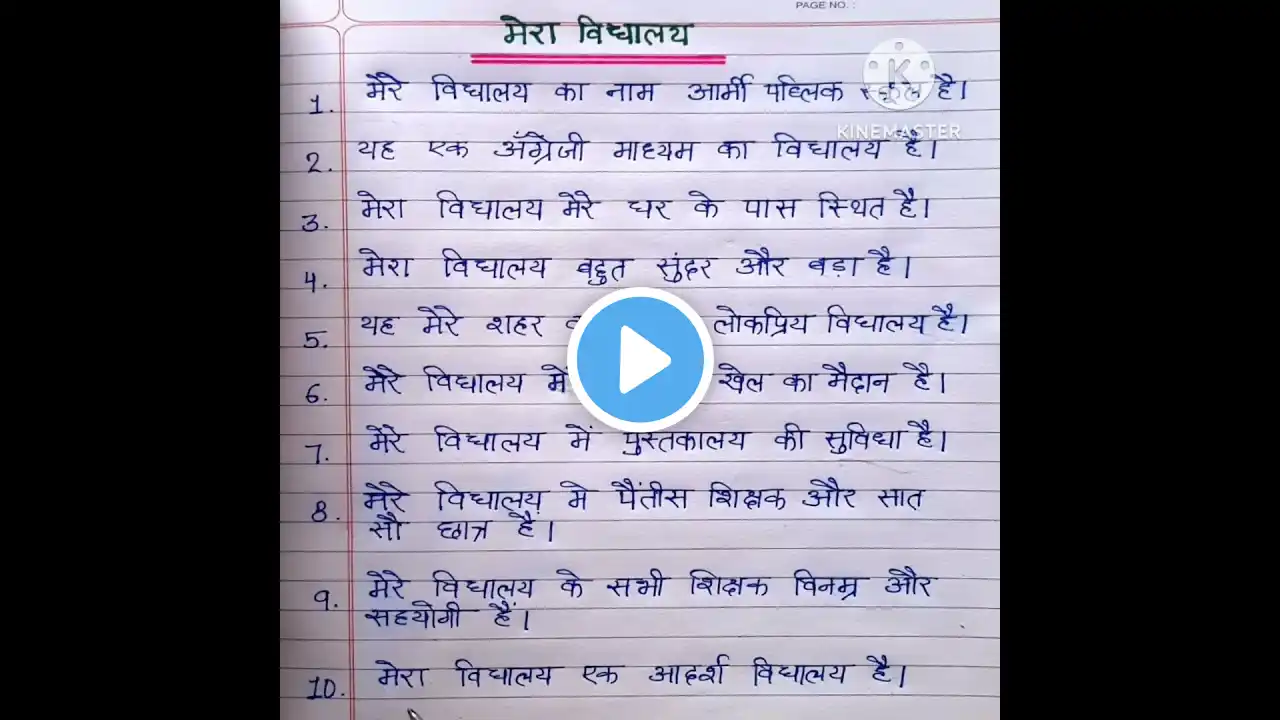 PAGE NO. :
मेरा विद्यालय
1. मेरे विद्यालय का नाम आर्मी पब्लिक स्कूल है।
KINEMASTER
2. यह एक अँग्रेजी माध्यम का विद्यालय है।
3. मेरा विद्यालय मेरे घर के पास स्थित है।
4. मेरा विद्यालय बहुत सुंदर और बड़ा है।
5. यह मेरे शहर लोकप्रिय विद्यालय है।
6. मेरे विद्यालय में खेल का मैदान है।
7. मेरे विद्यालय में पुस्तकालय की सुविधा है।
8. मेरे विद्यालय मे पैंतीस शिक्षक और सात
सौ छात्र है।
9. मेरे विद्यालय के सभी शिक्षक विनम्र और
सहयोगी हैं।
10. मेरा विद्यालय एक आदर्श विद्यालय है।